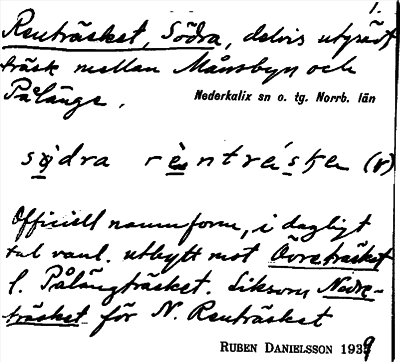 1.
Renträsket, Södra, delvis utgrävt
träsk mellan Månsbyn och
Pålänge.
Nederkalix sn o. tg. Norrb. län
södra rèntrásḱa (r)
Officiell namnform, i dagligt
tal vanl. utbytt mot Övreträsket
l. Pålängträsket. Liksom Nedre-
träsket för N. Renträsket
RUBEN DANIELSSON 1939